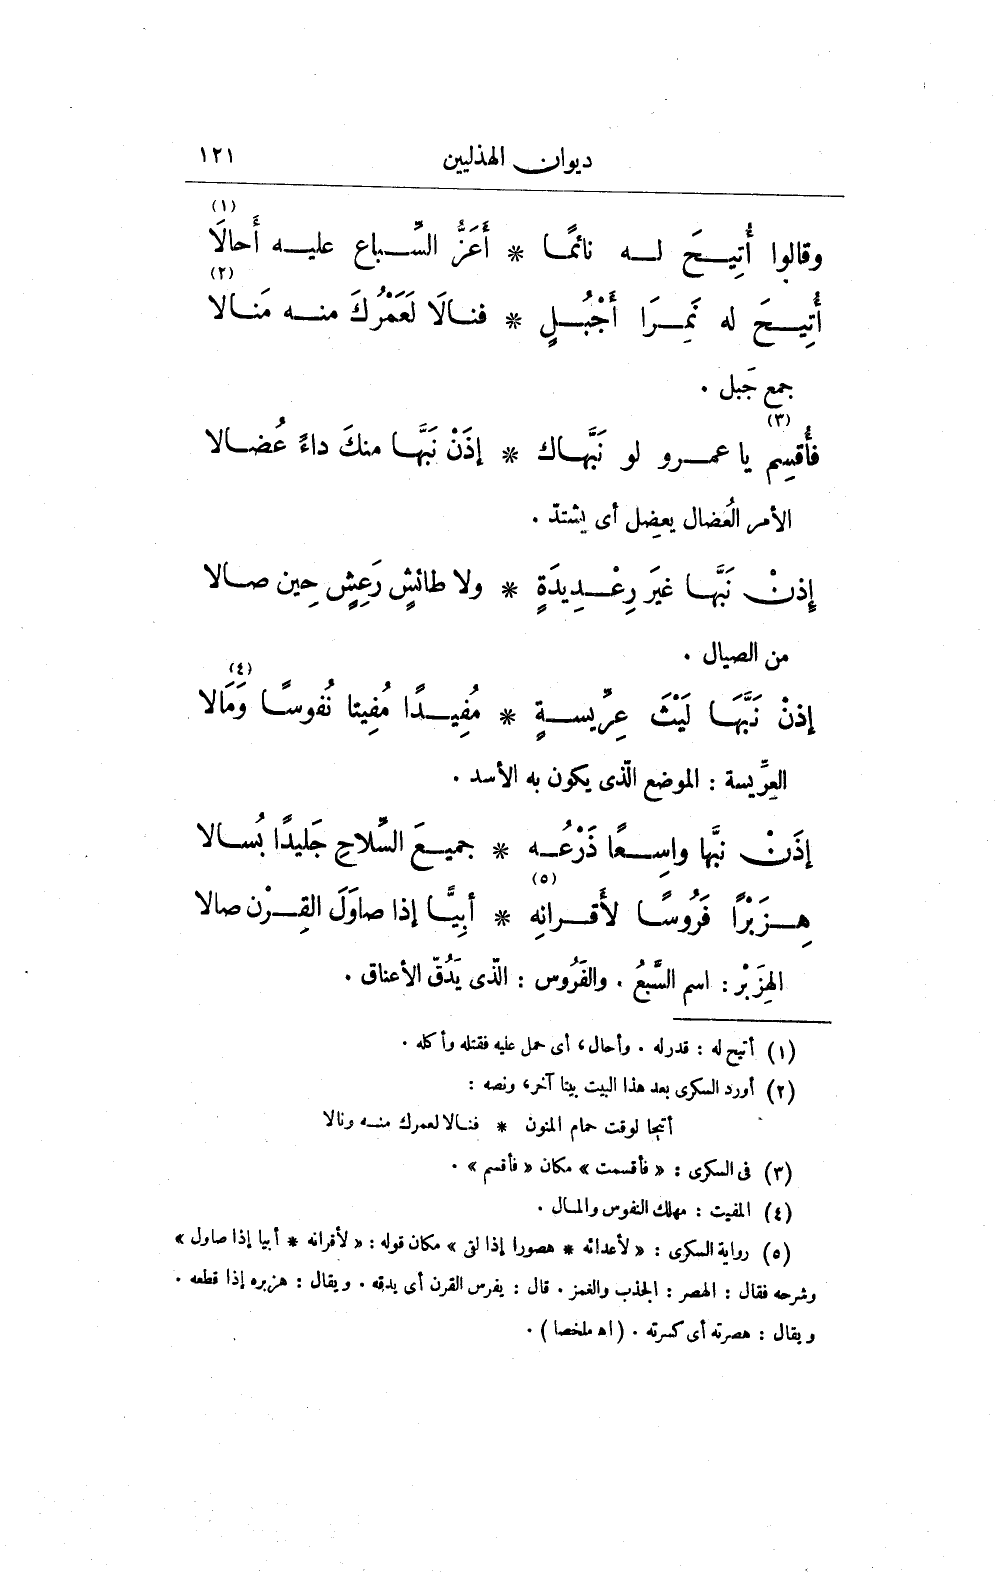 ديوان الهذليين ١٢١
وقالوا أُتِيحَ له نائمًا * أَعَزُّ السِّباع عليه أَحالَا (١)
أُتِيحَ له نَمِرَا أَجْبُلٍ * فنالَا لَعَمْرُكَ منه مَنالا (٢)
جمع جَبل .
فأُقسِم يا عمرو لو نَبَّهاك * إذَنْ نَبَّها منكَ داءً عُضالا (٣)
الأمر العُضال يعضِل أى يشتدّ .
إذنْ نَبَّها غيَر رِعْدِيدَةٍ * ولا طائشٍ رَعِشٍ حِين صالا
من الصيال .
إذنْ نَبَّهَا لَيْثَ عِرِّيسةٍ * مُفِيدًا مُفِيتا نُفوسًا وَمَالا (٤)
العِرِّيسة : الموضع الّذى يكون به الأسد .
إذَنْ نبَّها واسِعًا ذَرْعُه * جميعَ السِّلاحِ جَليدًا بُسالا
هِزَبْرًا فَرُوسًا لأَقرانِه * أبِيًّا إذا صاوَلَ القِرْن صالا (٥)
الهِزَبْر : اسم السَّبُعُ . والفَرُوس : الّذى يَدُقّ الأعناق .
(١) أتيح له : قدر له . وأحال، أى حمل عليه فقتله وأكله .
(٢) أورد السكرى بعد هذا البيت بيتا آخر، ونصه :
أتيحا لوقت حمام المنون * فنالا لعمرك منه ونالا
(٣) فى السكرى : « فأقسمت » مكان « فأقسم » .
(٤) المفيت : مهلك النفوس والمال .
(٥) رواية السكرى : « لأعدائه * هصورا إذا لقى » مكان قوله : « لأقرانه * أبيا إذا صاول »
وشرحه فقال : الهصر : الجذب والغمز . قال : يفرس القرن أى يدقه . ويقال : هزبره إذا قطعه .
ويقال : هصرته أى كسرته . (اه ملخصا) .